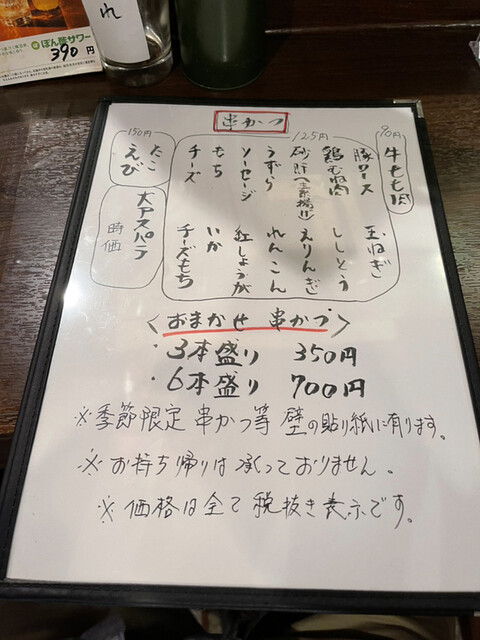 ぽん酢サワー
390円
れ
串かつ
90円
牛もも肉
125円
豚ロース
鶏むね肉
砂肝(素揚げ)
うずら
ソーセージ
もち
チーズ
玉ねぎ
ししとう
えりんぎ
れんこん
紅しょうが
いか
チーズもち
150円
たこ
えび
大アスパラ
時価
〈おまかせ 串かつ〉
・3本盛り 350円
・6本盛り 700円
※季節限定 串かつ等 壁の貼り紙に有ります。
※お持ち帰りは承っておりません。
※価格は全て税抜き表示です。